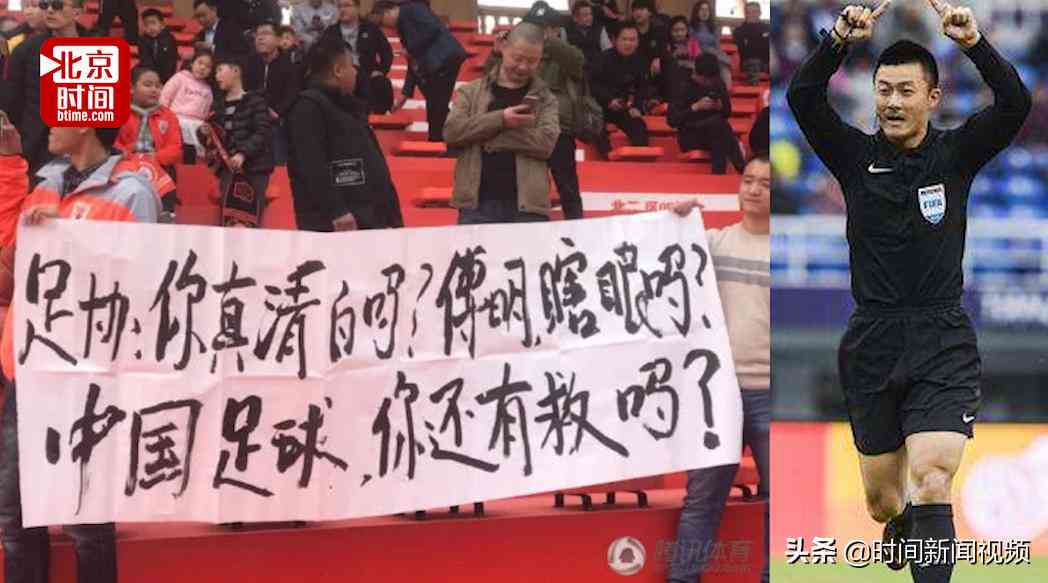 北京
时间
btime.com
足协:你真清白吗?傅明,瞎眼吗?
中国足球,你还有救吗?
FIFA
腾讯体育
头条 @时间新闻视频